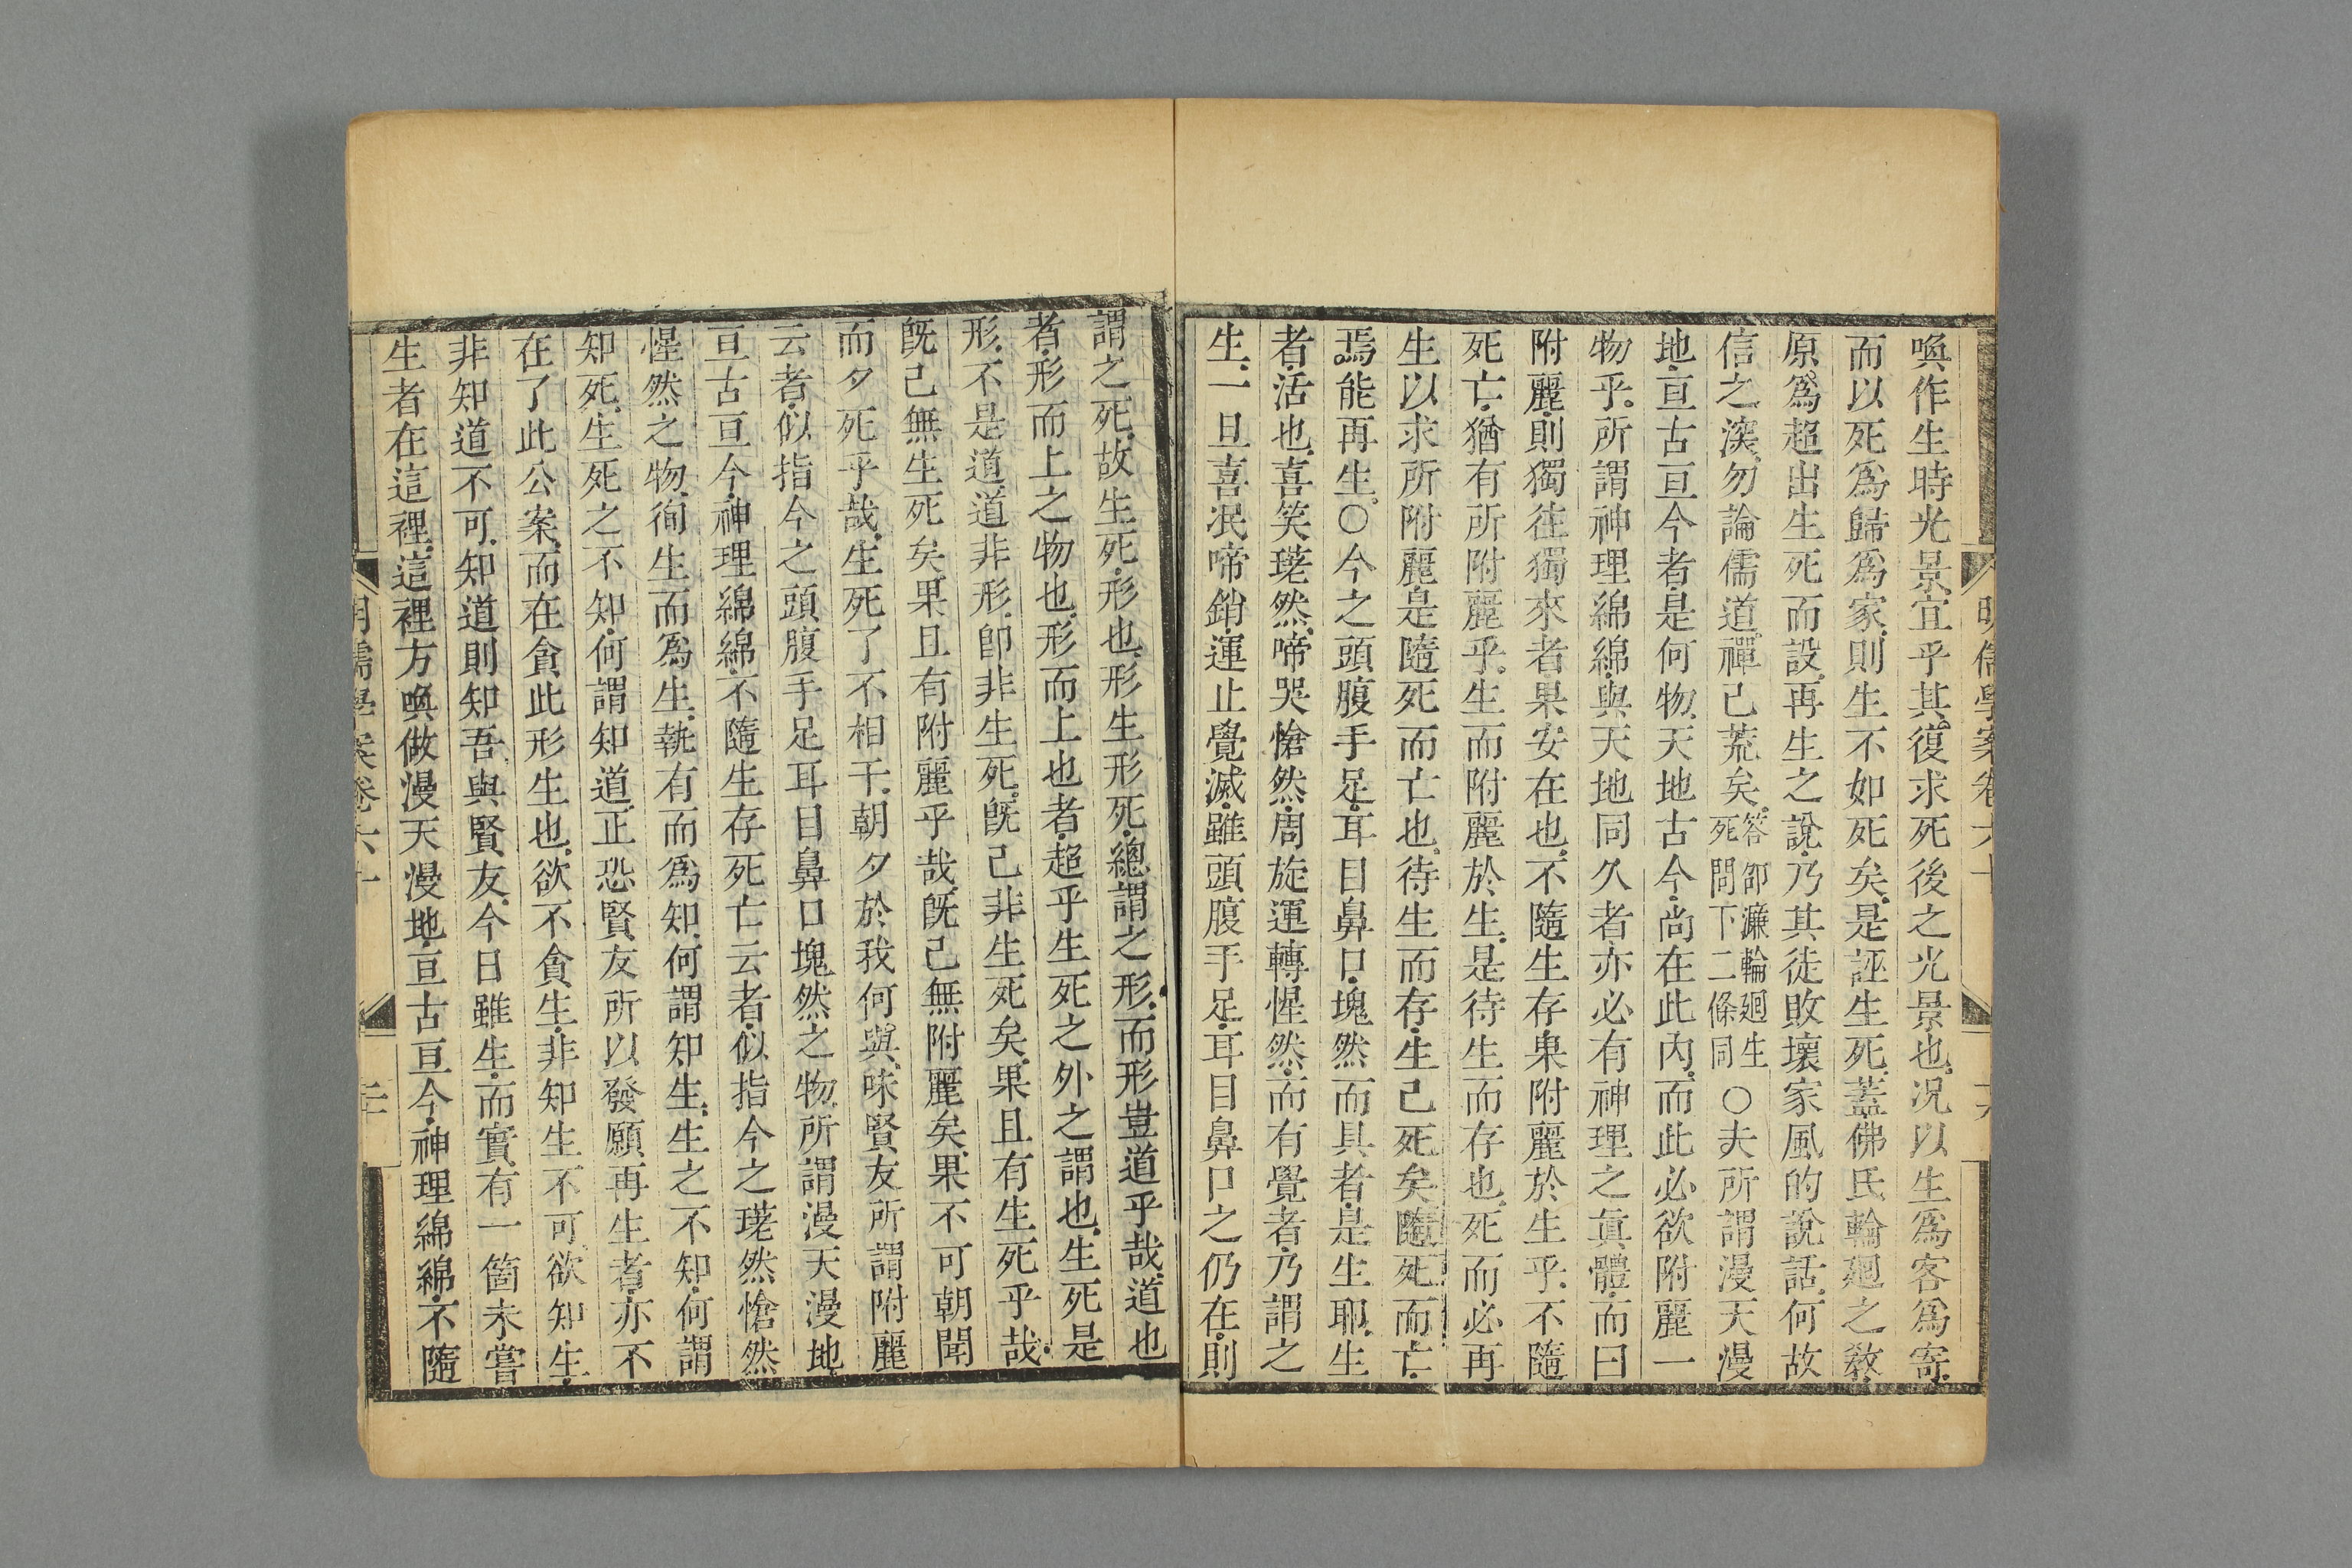 明儒學案卷六十 十六
喚作生時光景宜乎其復求死後之光景也况以生爲客爲寄
而以死爲歸爲家則生不如死矣是誣生死蓋佛氏輪廻之敎
原爲超出生死而設再生之說乃其徒敗壞家風的說話何故
信之深勿論儒道禪己荒矣答邵濂輪廻生死問下二條同○夫所謂漫天漫
地亘古亘今者是何物天地古今尚在此内而此必欲附麗一
物乎所謂神理綿綿與天地同久者亦必有神理之眞體而曰
附麗則獨徃獨來者果安在也不隨生存臬附麗於生乎不隨
死亡猶有所附麗乎生而附麗於生是待生而存也死而必再
生以求所附麗是隨死而亡也待生而存生己死矣隨死而亡
焉能再生○今之頭腹手足耳目鼻口塊然而具者是生耶生
者活也喜笑然啼哭愴然周旋運轉惺然而有覺者乃謂之
生一旦喜泯啼銷運止覺滅雖頭腹手足耳目鼻口之仍在則
謂之死故生死形也形生形死總謂之形而形豈道乎哉道也
者形而上之物也形而上也者超乎生死之外之謂也生死是
形不是道道非形卽非生死旣己非生死矣果且有生死乎哉
旣己無生死矣果且有附麗乎哉旣己無附麗矣果不可朝聞
而夕死乎哉生死了不相干朝夕於我何與味賢友所謂附麗
云者似指今之頭腹手足耳目鼻口塊然之物所謂漫天漫地
亘古亘今神理綿綿不隨生存死亡云者似指今之然愴然
惺然之物徇生而爲生執有而爲知何謂知生生之不知何謂
知死生死之不知何謂知道正恐賢友所以發願再生者亦不
在了此公案而在貪此形生也欲不貪生非知生不可欲知生
非知道不可知道則知吾與賢友今日雖生而實有一箇未嘗
生者在這裡這裡方喚做漫天漫地亘古亘今神理綿綿不隨
明儒學案卷六十